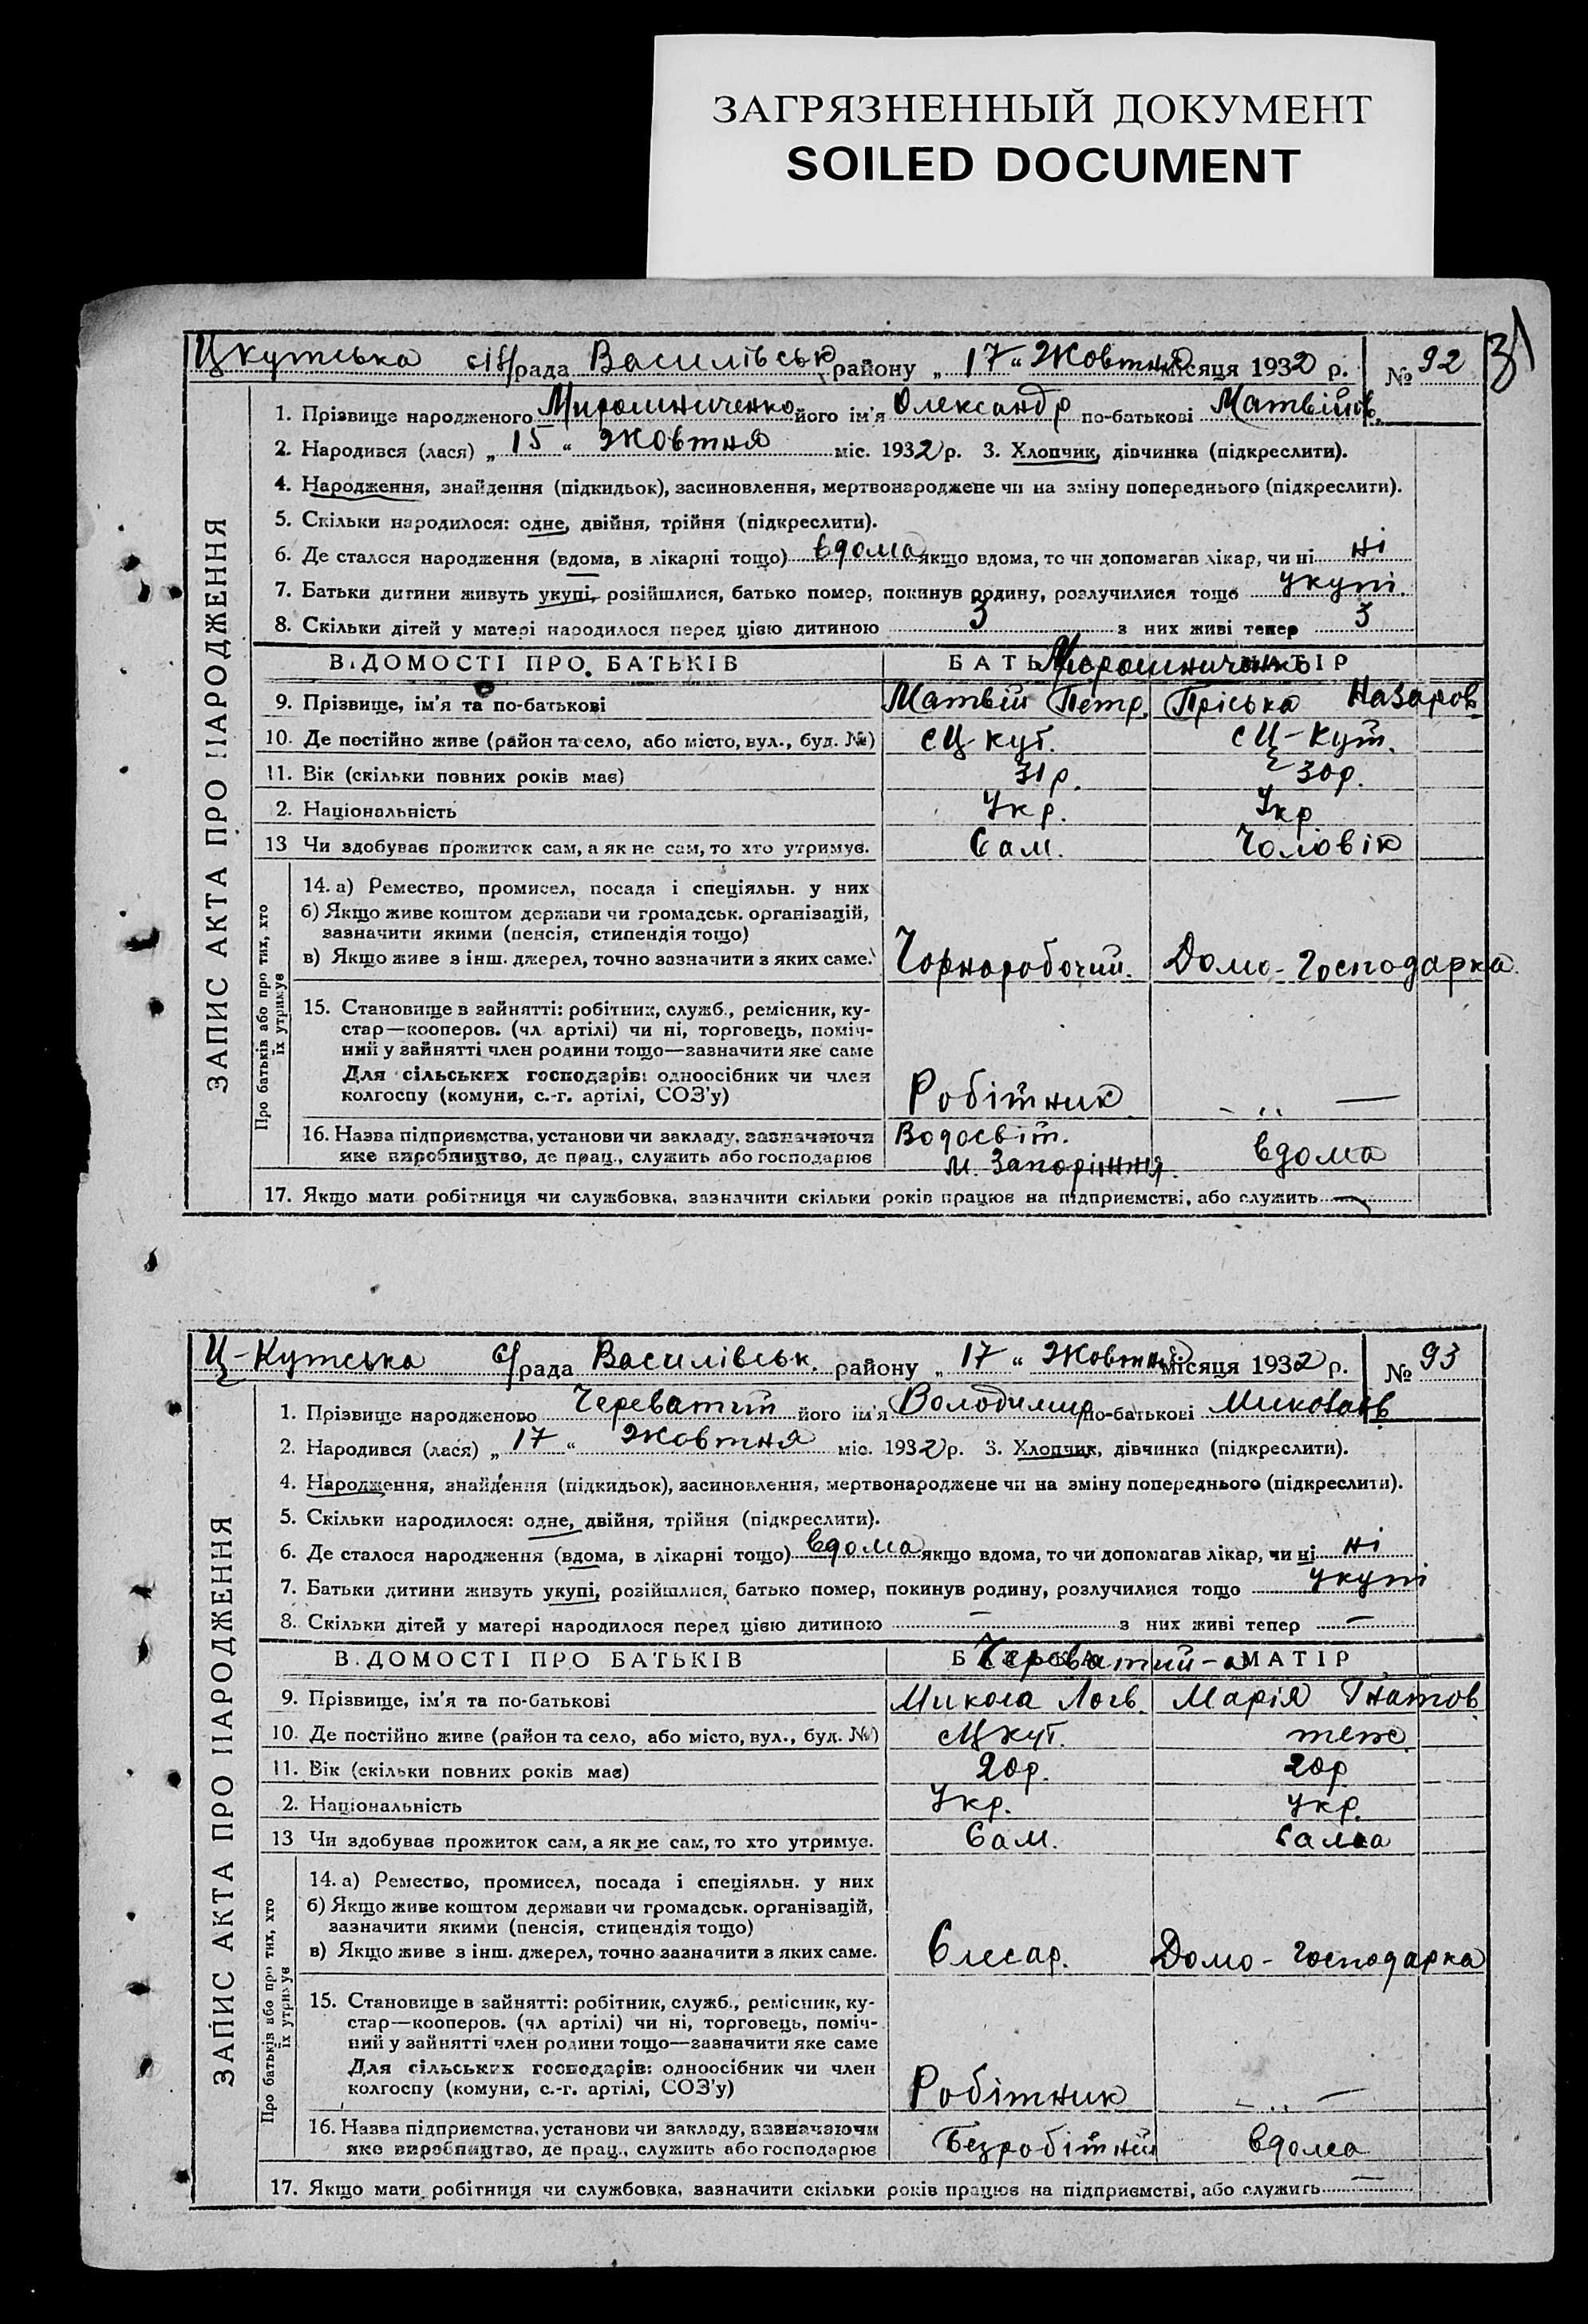 ЗАГРЯЗНЕННЫЙ ДОКУМЕНТ
SOILED DOCUMENT
Цкутська сіль/рада Василівськ району „ 17 “ Жовтня місяця 1932 р. № 92
ЗАПИС АКТА ПРО НАРОДЖЕННЯ
1. Прізвище народженого Мирошниченко його ім'я Олександр по-батькові Матвійов.
2. Народився (лася) „ 15 “ Жовтня міс. 1932 р. 3. Хлопчик, дівчинка (підкреслити).
4. Народження, знайдення (підкидьок), засиновлення, мертвонароджене чи на зміну попереднього (підкреслити).
5. Скільки народилося: одне, двійня, трійня (підкреслити).
6. Де сталося народження (вдома, в лікарні тощо) вдома якщо вдома, то чи допомагав лікар, чи ні ні
7. Батьки дитини живуть укупі, розійшлися, батько помер, покинув родину, розлучилися тощо укупі
8. Скільки дітей у матері народилося перед цією дитиною 3 з них живі тепер 3
ВІДОМОСТІ ПРО БАТЬКІВ БАТЬКО МАТІР
Мирошниченко
9. Прізвище, ім'я та по-батькові Матвій Петр. Пріська Назаров
10. Де постійно живе (район та село, або місто, вул., буд. №) с Ц кут. с Ц-Кут.
11. Вік (скільки повних років має) 31 р. 30 р.
2. Національність Укр. Укр
13 Чи здобуває прожиток сам, а як не сам, то хто утримує. Сам. Чоловік
Про батьків або про тих, хто їх утримує
14. а) Ремество, промисел, посада і спеціяльн. у них
б) Якщо живе коштом держави чи громадськ. організацій,
зазначити якими (пенсія, стипендія тощо)
в) Якщо живе з інш. джерел, точно зазначити з яких саме. Чорноробочий. Домо-Господарка
15. Становище в зайнятті: робітник, служб., ремісник, ку-
стар—кооперов. (чл артілі) чи ні, торговець, поміч-
ний у зайнятті член родини тощо—зазначити яке саме
Для сільських господарів: одноосібник чи член
колгоспу (комуни, с.-г. артілі, СОЗ'у) Робітник - „ —
16. Назва підприємства, установи чи закладу, зазначаючи Водосвіт.
яке виробництво, де прац., служить або господарює м. Запоріжжя. вдома
17. Якщо мати робітниця чи службовка, зазначити скільки років працює на підприємстві, або служить —
Ц-Кутська с/рада Василівськ. району „ 17 “ Жовтня місяця 1932 р. № 93
ЗАПИС АКТА ПРО НАРОДЖЕННЯ
1. Прізвище народженого Череватий його ім'я Володимир по-батькові Миколаїв
2. Народився (лася) „ 17 “ Жовтня міс. 1932 р. 3. Хлопчик, дівчинка (підкреслити).
4. Народження, знайдення (підкидьок), засиновлення, мертвонароджене чи на зміну попереднього (підкреслити).
5. Скільки народилося: одне, двійня, трійня (підкреслити).
6. Де сталося народження (вдома, в лікарні тощо) вдома якщо вдома, то чи допомагав лікар, чи ні ні
7. Батьки дитини живуть укупі, розійшлися, батько помер, покинув родину, розлучилися тощо укупі
8. Скільки дітей у матері народилося перед цією дитиною — з них живі тепер —
ВІДОМОСТІ ПРО БАТЬКІВ БАТЬКО МАТІР
Череватий-а
9. Прізвище, ім'я та по-батькові Микола Логв. Марія Гнатов
10. Де постійно живе (район та село, або місто, вул., буд. №) с Ц кут. теж
11. Вік (скільки повних років має) 20 р. 20 р
2. Національність Укр. Укр.
13 Чи здобуває прожиток сам, а як не сам, то хто утримує. Сам. сама
Про батьків або про тих, хто їх утримує
14. а) Ремество, промисел, посада і спеціяльн. у них
б) Якщо живе коштом держави чи громадськ. організацій,
зазначити якими (пенсія, стипендія тощо)
в) Якщо живе з інш. джерел, точно зазначити з яких саме. Слесар. Домо-Господарка
15. Становище в зайнятті: робітник, служб., ремісник, ку-
стар—кооперов. (чл артілі) чи ні, торговець, поміч-
ний у зайнятті член родини тощо—зазначити яке саме
Для сільських господарів: одноосібник чи член
колгоспу (комуни, с.-г. артілі, СОЗ'у) Робітник - „ —
16. Назва підприємства, установи чи закладу, зазначаючи
яке виробництво, де прац., служить або господарює Безробітний вдома
17. Якщо мати робітниця чи службовка, зазначити скільки років працює на підприємстві, або служить —